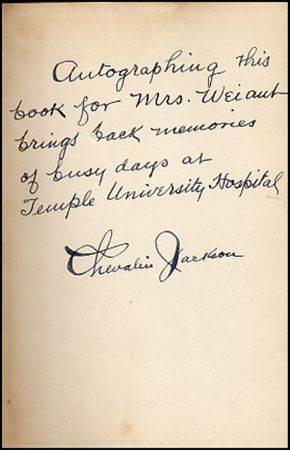 Autographing this
book for Mrs. Weiant
brings back memories
of busy days at
Temple University Hospital
Chevalier Jackson